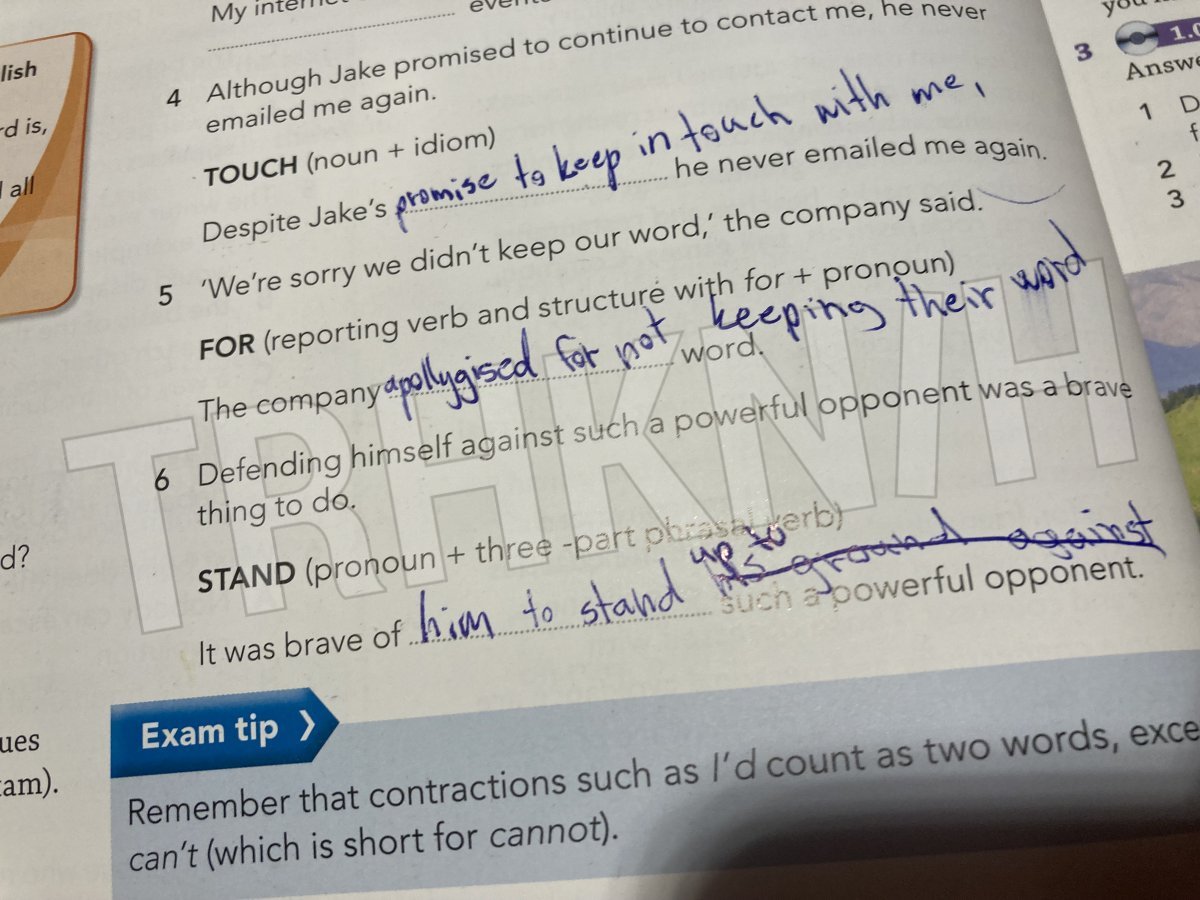 My
lish
rd is,
all
4 Although Jake promised to continue to contact me, he never
emailed me again.
TOUCH (noun + idiom)
Despite Jake's promise to keep in touch with me, he never emailed me again.
5 'We're sorry we didn't keep our word,' the company said.
FOR (reporting verb and structure with for + pronoun)
The company apollygised for not keeping their word word.
6 Defending himself against such a powerful opponent was a brave
thing to do.
STAND (pronoun + three -part phrasal verb)
It was brave of him to stand up to his ground against such a powerful opponent.
TRHKN/H
d?
ues
am).
Exam tip
Remember that contractions such as I'd count as two words, exce
can't (which is short for cannot).
3 1.0
Answe
1 D
f
2
3